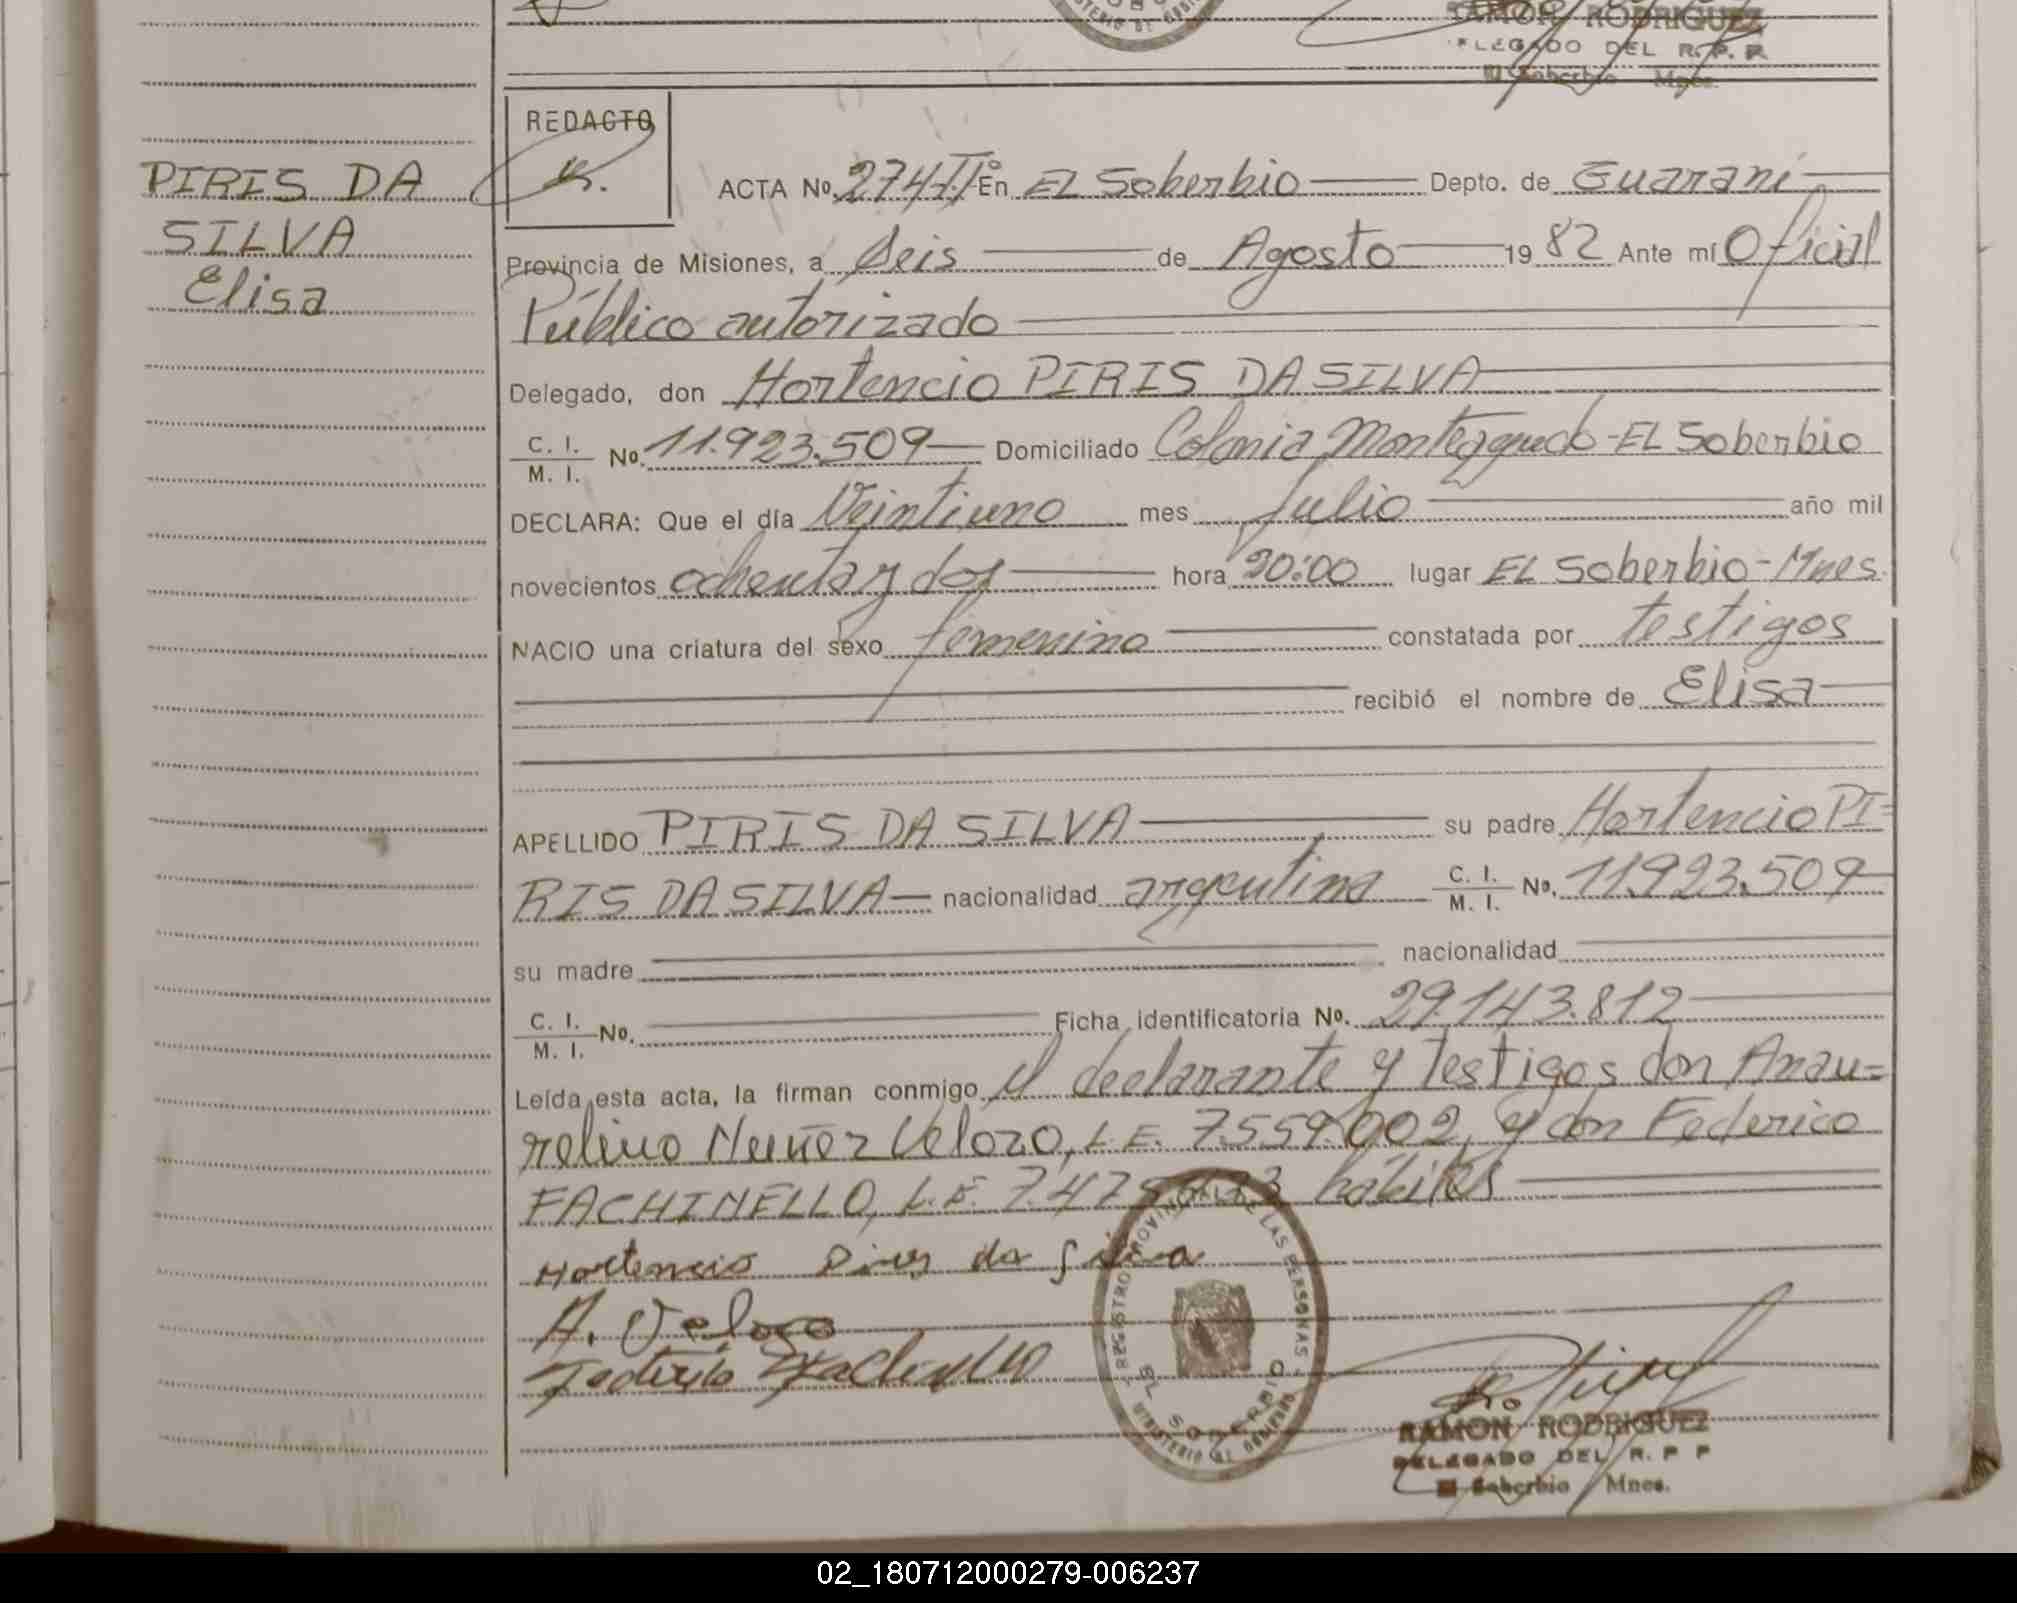 MINISTERIO DE GOBIERNO
RAMON RODRIGUEZ
DELEGADO DEL R. P. P.
El Soberbio Mnes.
PIRIS DA
SILVA
Elisa
REDACTO
ACTA No. 274-Tº II En EL Soberbio Depto. de Guaraní
Provincia de Misiones, a Seis de Agosto 1982 Ante mí Oficial
Público autorizado
Delegado, don Hortencio PIRIS DA SILVA
C. I.
M. I. No. 11.923.509 Domiciliado Colonia Monteagudo - EL Soberbio
DECLARA: Que el día Veintiuno mes Julio año mil
novecientos ochenta y dos hora 20:00 lugar EL Soberbio - Mnes.
NACIO una criatura del sexo femenino constatada por testigos
recibió el nombre de Elisa
APELLIDO PIRIS DA SILVA su padre Hortencio PI=
RIS DA SILVA nacionalidad argentina C. I.
M. I. No. 11.923.509
su madre nacionalidad
C. I.
M. I. No. Ficha identificatoria No. 29.143.812
Leída esta acta, la firman conmigo el declarante y testigos don Anau=
relino Nuñez Velozo, L.E. 7.559.002, y don Federico
FACHINELLO, L.E. habiles
Hortencio Piris da Silva
A. Velozo
Federico Fachinello
REGISTRO PROVINCIAL DE LAS PERSONAS
EL SOBERBIO
MINISTERIO DE GOBIERNO
RAMON RODRIGUEZ
DELEGADO DEL R. P. P
El Soberbio Mnes.
02_180712000279-006237